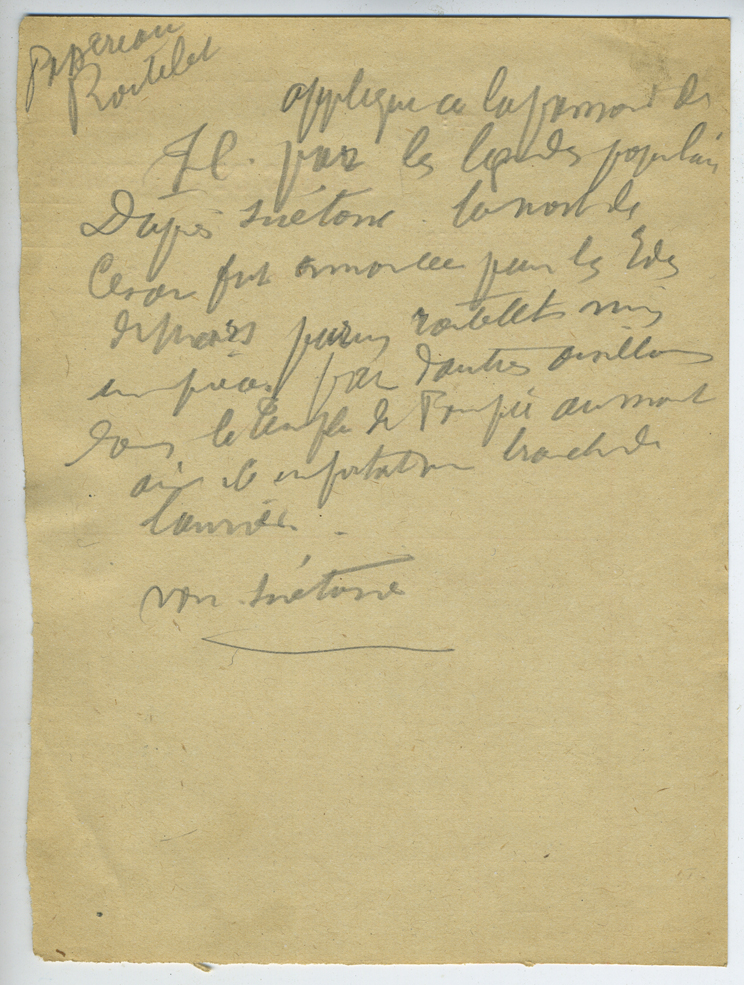 Roitelet
appliquée à la passion de
J.C. par les légendes populair
D'après Suétone la mort de
César fut annoncée pour les Ides
de mars par un roitelet mis
en pièces par d'autres oisillons
dans le temple de Pompée au moment
où il emportait une branche de
laurier.
voir Suétone